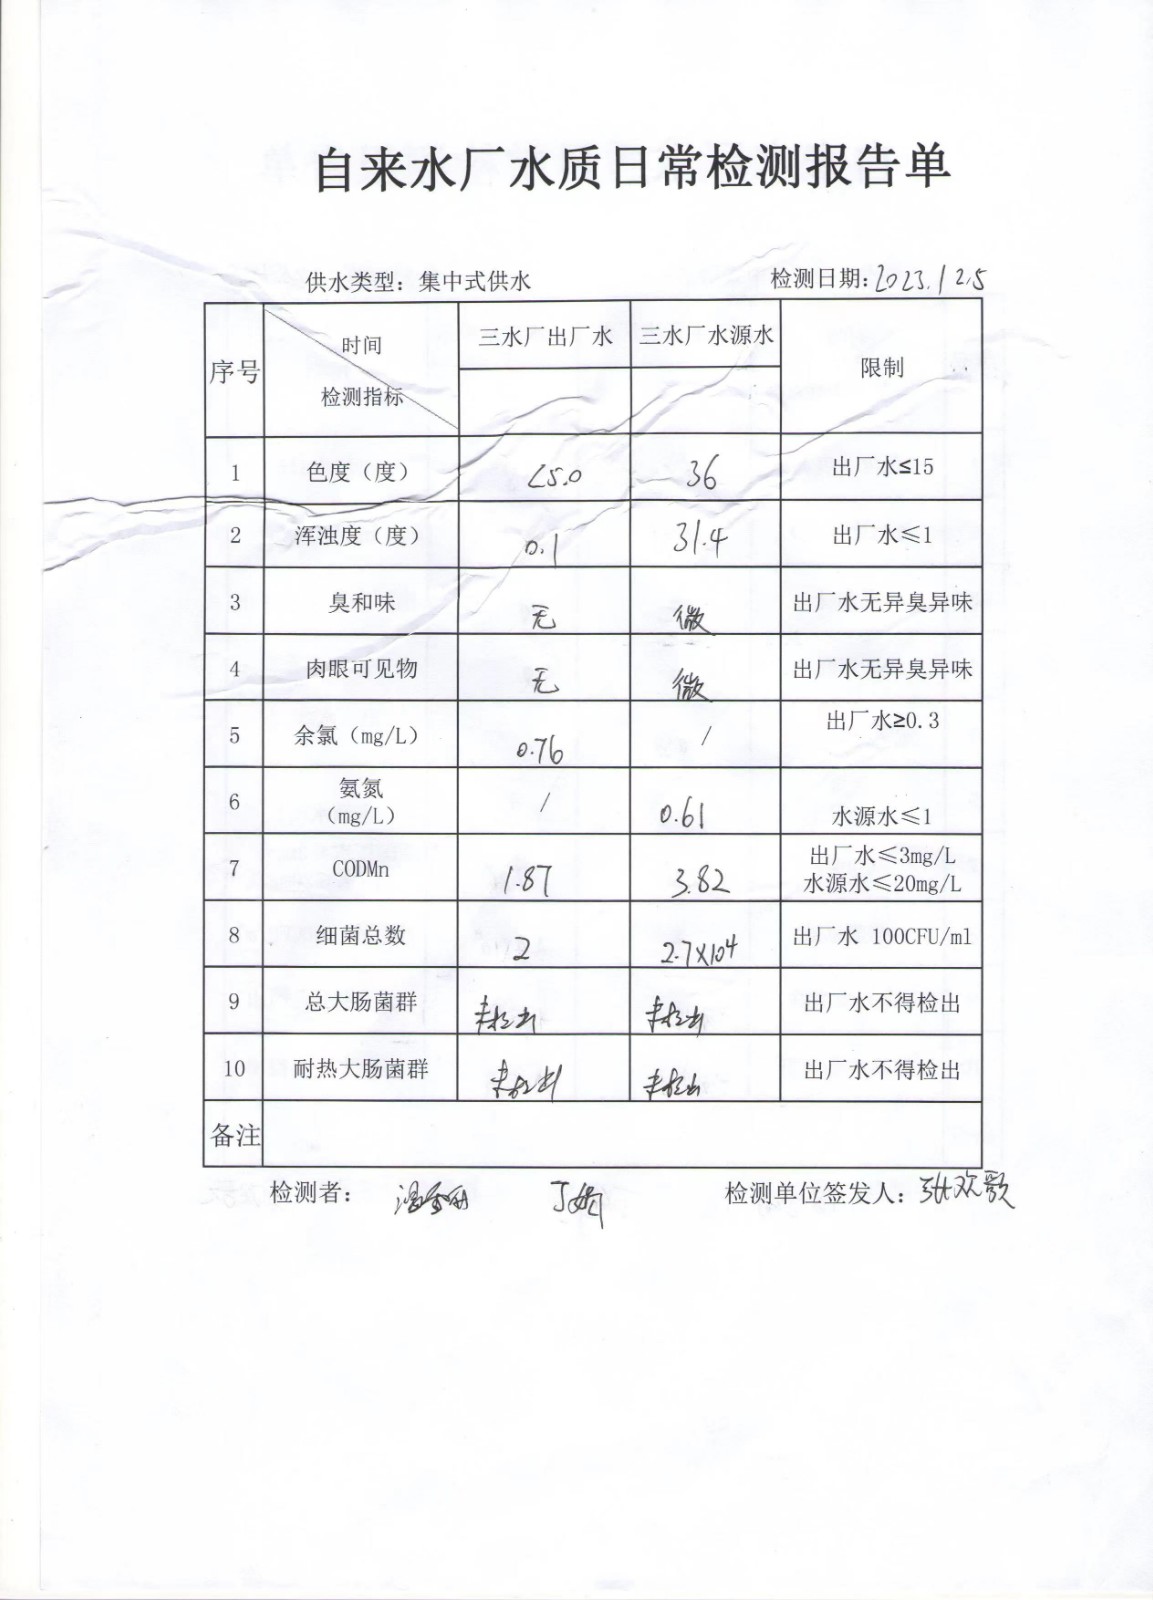 自来水厂水质日常检测报告单
供水类型：集中式供水 检测日期：2023.12.5
序号 时间 检测指标 三水厂出厂水 三水厂水源水 限制
1 色度（度） <5.0 36 出厂水≤15
2 浑浊度（度） 0.1 31.4 出厂水≤1
3 臭和味 无 微 出厂水无异臭异味
4 肉眼可见物 无 微 出厂水无异臭异味
5 余氯（mg/L） 0.76 / 出厂水≥0.3
6 氨氮 （mg/L） / 0.61 水源水≤1
7 CODMn 1.87 3.82 出厂水≤3mg/L
水源水≤20mg/L
8 细菌总数 2 2.7×10⁴ 出厂水 100CFU/ml
9 总大肠菌群 未检出 未检出 出厂水不得检出
10 耐热大肠菌群 未检出 未检出 出厂水不得检出
备注
检测者： 检测单位签发人：张欢歌